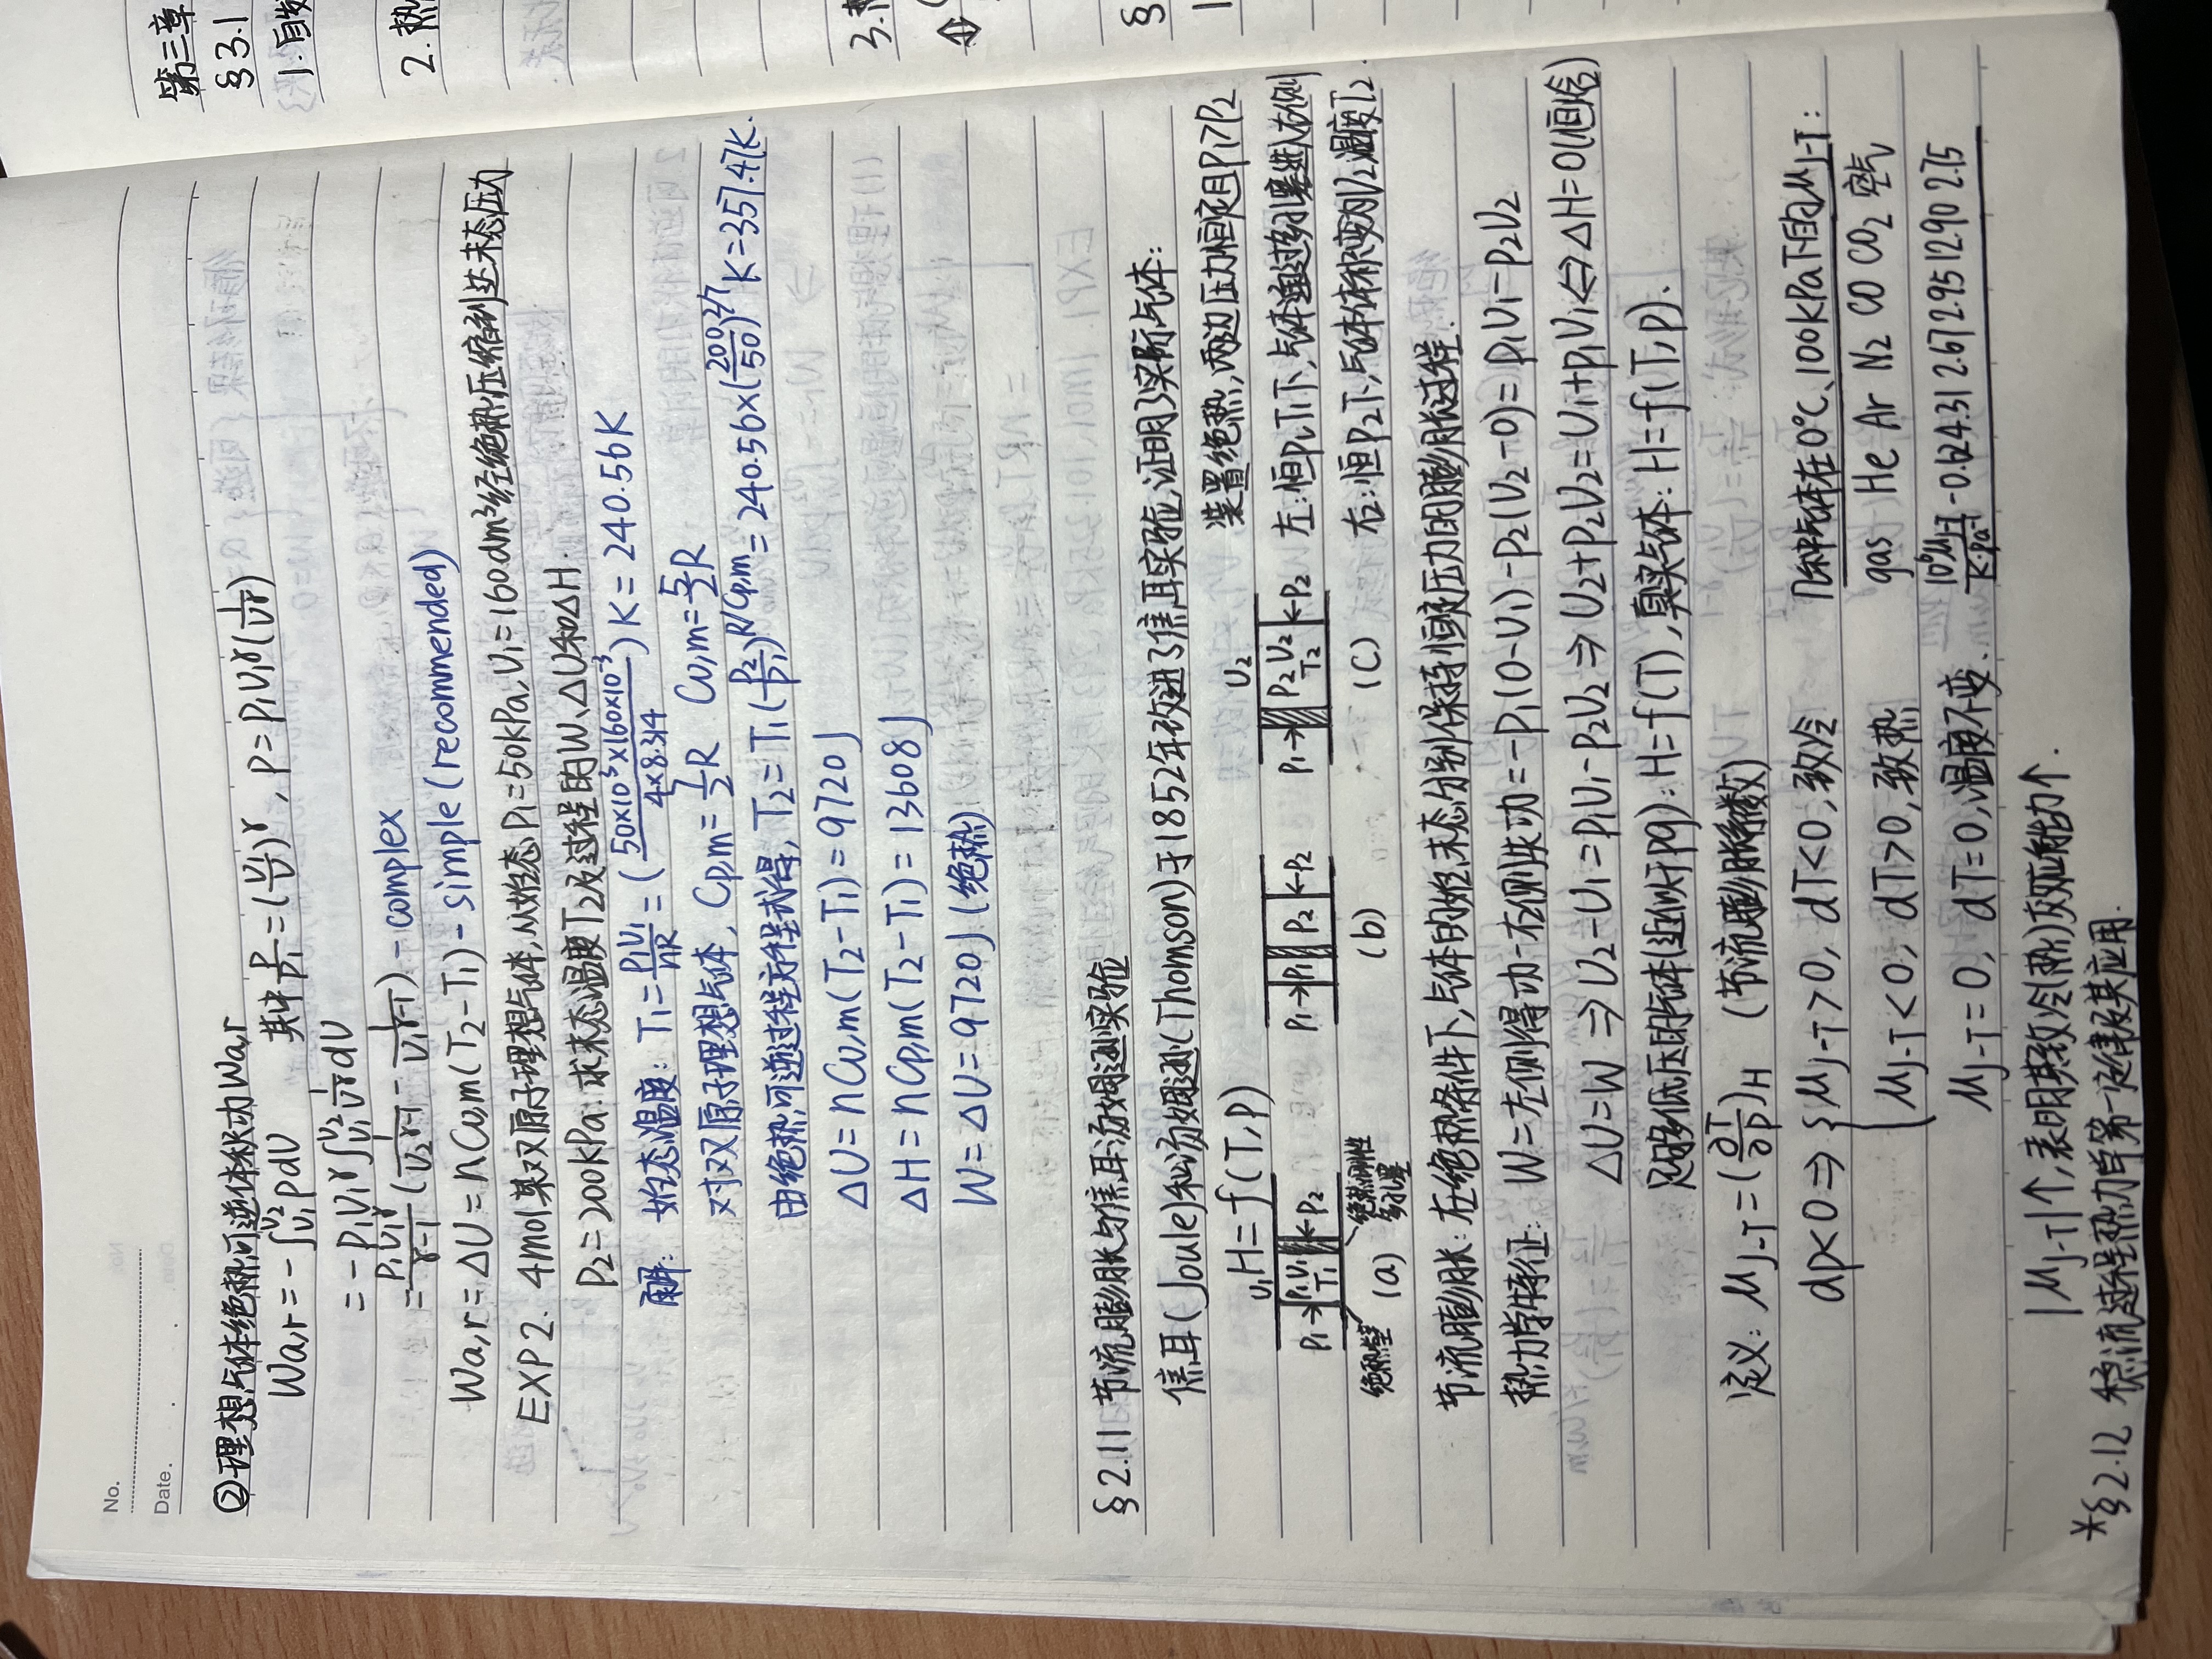 No.
Date.
②理想气体绝热可逆体积功Wa,r
Wa,r = -∫_{V1}^{V2} pdV 其中 p/p1 = (V1/V)^γ, p = p1V1^γ(1/V^γ)
= -p1V1^γ ∫_{V1}^{V2} 1/V^γ dV
= p1V1^γ/(γ-1) (1/V2^{γ-1} - 1/V1^{γ-1}) - complex
Wa,r = ΔU = nCv,m(T2-T1) - simple (recommended)
EXP 2. 4mol某双原子理想气体,从始态p1=50kPa,V1=160dm³经绝热压缩到达末态压力
P2=200kPa.求末态温度T2及过程的W、ΔU和ΔH.
解: 始态温度: T1 = p1V1/nR = (50×10³×160×10⁻³/4×8.314) K = 240.56K
对双原子理想气体, Cp,m = 7/2 R Cv,m = 5/2 R
由绝热可逆过程方程式得, T2 = T1(p2/p1)^{R/Cp,m} = 240.56×(200/50)^{2/7} K = 357.47K.
ΔU = nCv,m(T2-T1) = 9720J
ΔH = nCp,m(T2-T1) = 13608J
W = ΔU = 9720J (绝热)
§2.11 节流膨胀与焦耳汤姆逊实验
焦耳(Joule)和汤姆逊(Thomson)于1852年改进了焦耳实验,证明了实际气体:
H = f(T,p)
装置绝热,两边压力恒定且p1>p2
左:恒p1,T1下,气体通过多孔塞进入右侧
右:恒p2下,气体体积变为V2,温度T2.
V1
p1→ p1 V1 T1 ←p2
绝热壁 (a) 绝热刚性多孔塞
p1→ p1 p2 ←p2
(b)
V2
p1→ p2 V2 T2 ←p2
(c)
节流膨胀:在绝热条件下,气体的始、末态分别保持恒定压力的膨胀过程.
热力学特征: W=左侧得功-右侧失功=-p1(0-V1)-p2(V2-0)=p1V1-p2V2
ΔU=W ⇒ U2-U1=p1V1-p2V2 ⇒ U2+p2V2=U1+p1V1 ⇔ ΔH=0(恒焓)
足够低压的气体(近似于pg): H=f(T), 真实气体: H=f(T,p).
定义: μJ-T = (∂T/∂p)H (节流膨胀系数)
dp<0 ⇒ { μJ-T>0, dT<0, 致冷
μJ-T<0, dT>0, 致热
μJ-T=0, dT=0, 温度不变.
几种气体在0℃、100kPa下的μJ-T:
gas He Ar N2 CO CO2 空气
10⁶μJ-T/K·pa⁻¹ -0.62 4.31 2.67 2.95 12.90 2.75
|μJ-T|↑,表明其致冷(热)效应能力↑.
*§2.12 稳流过程热力学第一定律及其应用.
第三章
§3.1
1.自发
2.热
3.
§
1